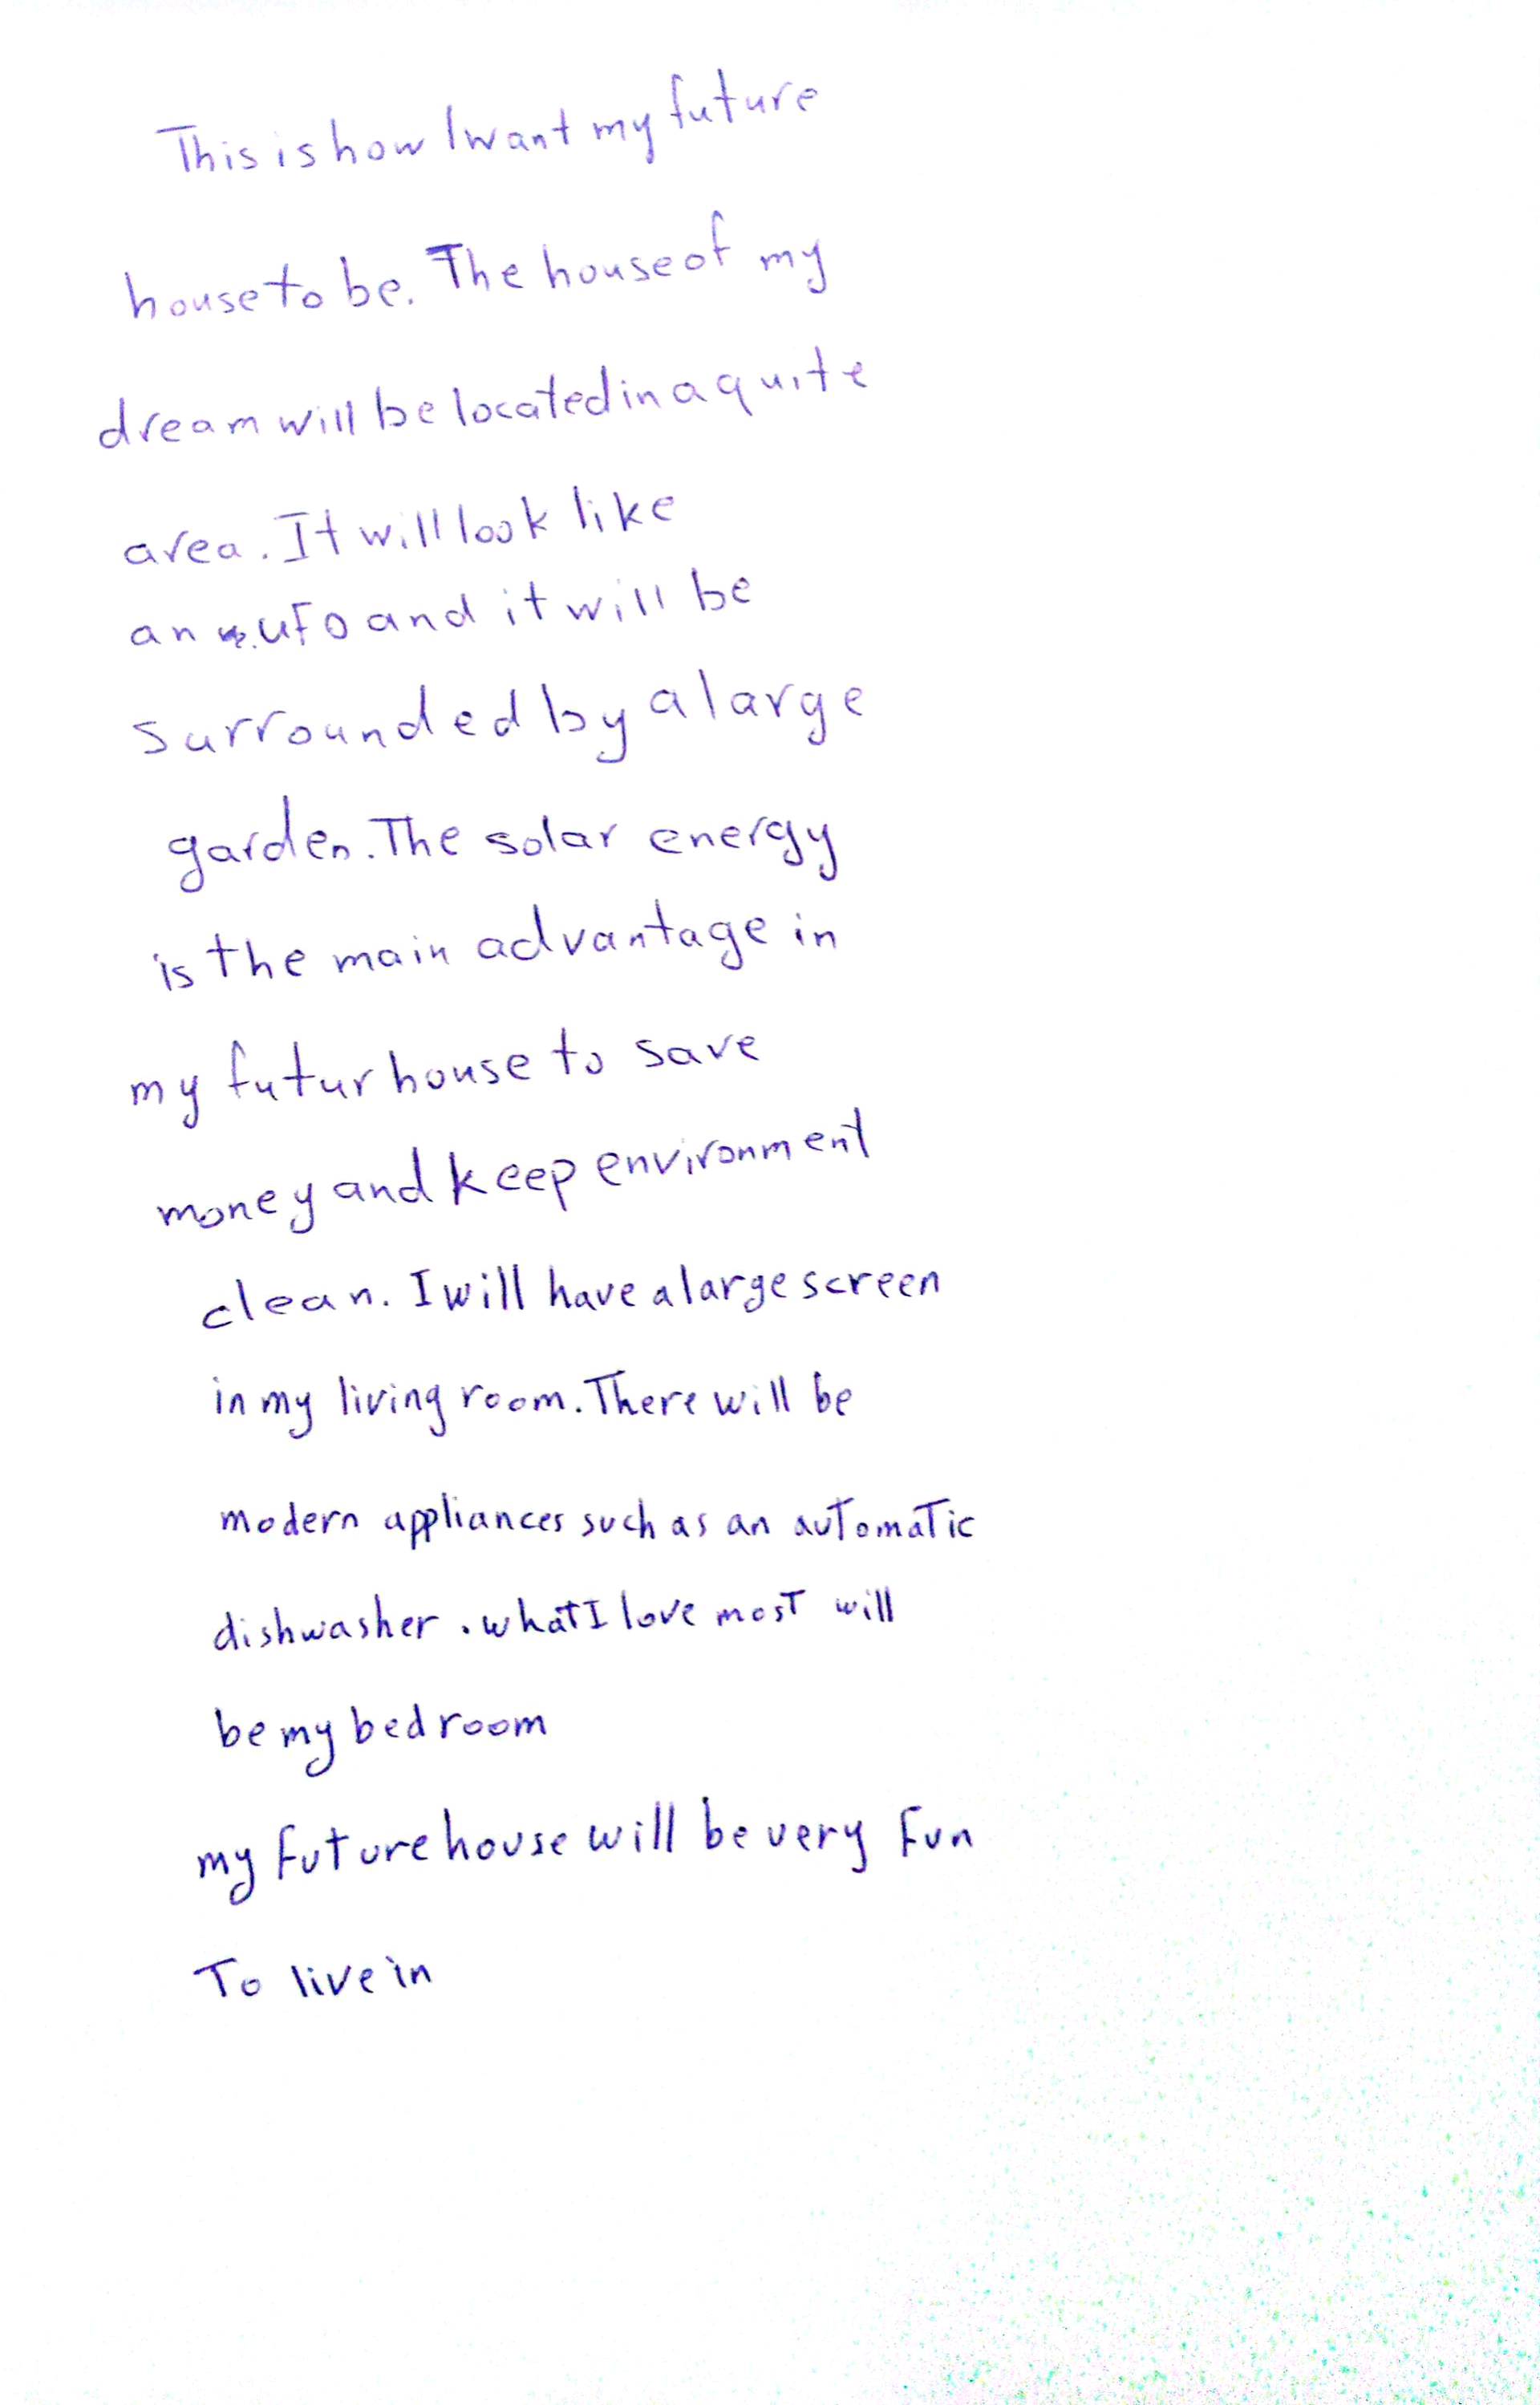 This is how I want my future
house to be. The house of my
dream will be located in a quite
area. It will look like
an UFO and it will be
surrounded by a large
garden. The solar energy
is the main advantage in
my futur house to save
money and keep environment
clean. I will have a large screen
in my living room. There will be
modern appliances such as an automatic
dishwasher. what I love most will
be my bedroom
my future house will be very Fun
To live in